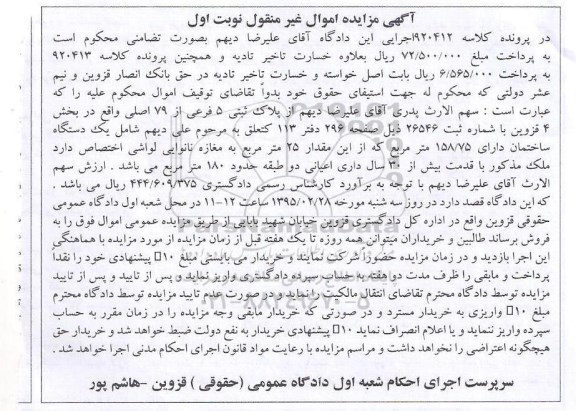 آگهی مزایده اموال غیر منقول نوبت اول
در پرونده کلاسه ۹۲۰۴۱۲اجرایی این دادگاه آقای علیرضا دیهم بصورت تضامنی محکوم است
به پرداخت مبلغ ۷۲/۵۰۰/۰۰۰ ریال بعلاوه خسارت تاخیر تادیه و همچنین پرونده کلاسه ۹۲۰۴۱۳
به پرداخت ۶/۵۶۵/۰۰۰ ریال بابت اصل خواسته و خسارت تاخیر تادیه در حق بانک انصار قزوین و نیم
عشر دولتی که محکوم له جهت استیفای حقوق خود بدواً تقاضای توقیف اموال محکوم علیه را که
عبارت است : سهم الارث پدری آقای علیرضا دیهم از پلاک ثبتی ۵ فرعی از ۷۹ اصلی واقع در بخش
۴ قزوین با شماره ثبت ۲۶۵۴۶ ذیل صفحه ۲۹۶ دفتر ۱۱۳ کتعلق به مرحوم علی دیهم شامل یک دستگاه
ساختمان دارای ۱۵۸/۷۵ متر مربع که از این مقدار ۲۵ متر مربع به مغازه نانوایی لواشی اختصاص دارد
ملک مذکور با قدمت بیش از ۳۰ سال داری اعیانی دو طبقه حدود ۱۸۰ متر مربع می باشد . ارزش سهم
الارث آقای علیرضا دیهم با توجه به برآورد کارشناس رسمی دادگستری ۴۴۴/۶۰۹/۳۷۵ ریال می باشد .
که این دادگاه قصد دارد در روز سه شنبه مورخه ۱۳۹۵/۰۲/۲۸ ساعت ۱۲-۱۱ در محل شعبه اول دادگاه عمومی
حقوقی قزوین واقع در اداره کل دادگستری قزوین خیابان شهید بابایی از طریق مزایده عمومی اموال فوق را به
فروش برساند طالبین و خریداران میتوانن همه روزه تا یک هفته قبل از زمان مزایده از مورد مزایده با هماهنگی
این اجرا بازدید و در زمان مزایده حضوراً شرکت نمایند و خریدار می بایستی مبلغ ۱۰ پیشنهادی خود را نقداً
پرداخت و مابقی را ظرف مدت دو هفته به حساب سپرده دادگستری واریز نماید و پس از تایید و پس از تایید
مزایده توسط دادگاه محترم تقاضای انتقال مالکیت را نماید و در صورت عدم تایید مزایده توسط دادگاه محترم
مبلغ ۱۰ واریزی به خریدار مسترد و در صورتی که خریدار مابقی وجه مزایده را در زمان مقرر به حساب
سپرده واریز ننماید و یا اعلام انصراف نماید ۱۰ پیشنهادی خریدار به نفع دولت ضبط خواهد شد و خریدار حق
هیچگونه اعتراضی را نخواهد داشت و مراسم مزایده با رعایت مواد قانون اجرای احکام مدنی اجرا خواهد شد .
سرپرست اجرای احکام شعبه اول دادگاه عمومی (حقوقی ) قزوین -هاشم پور